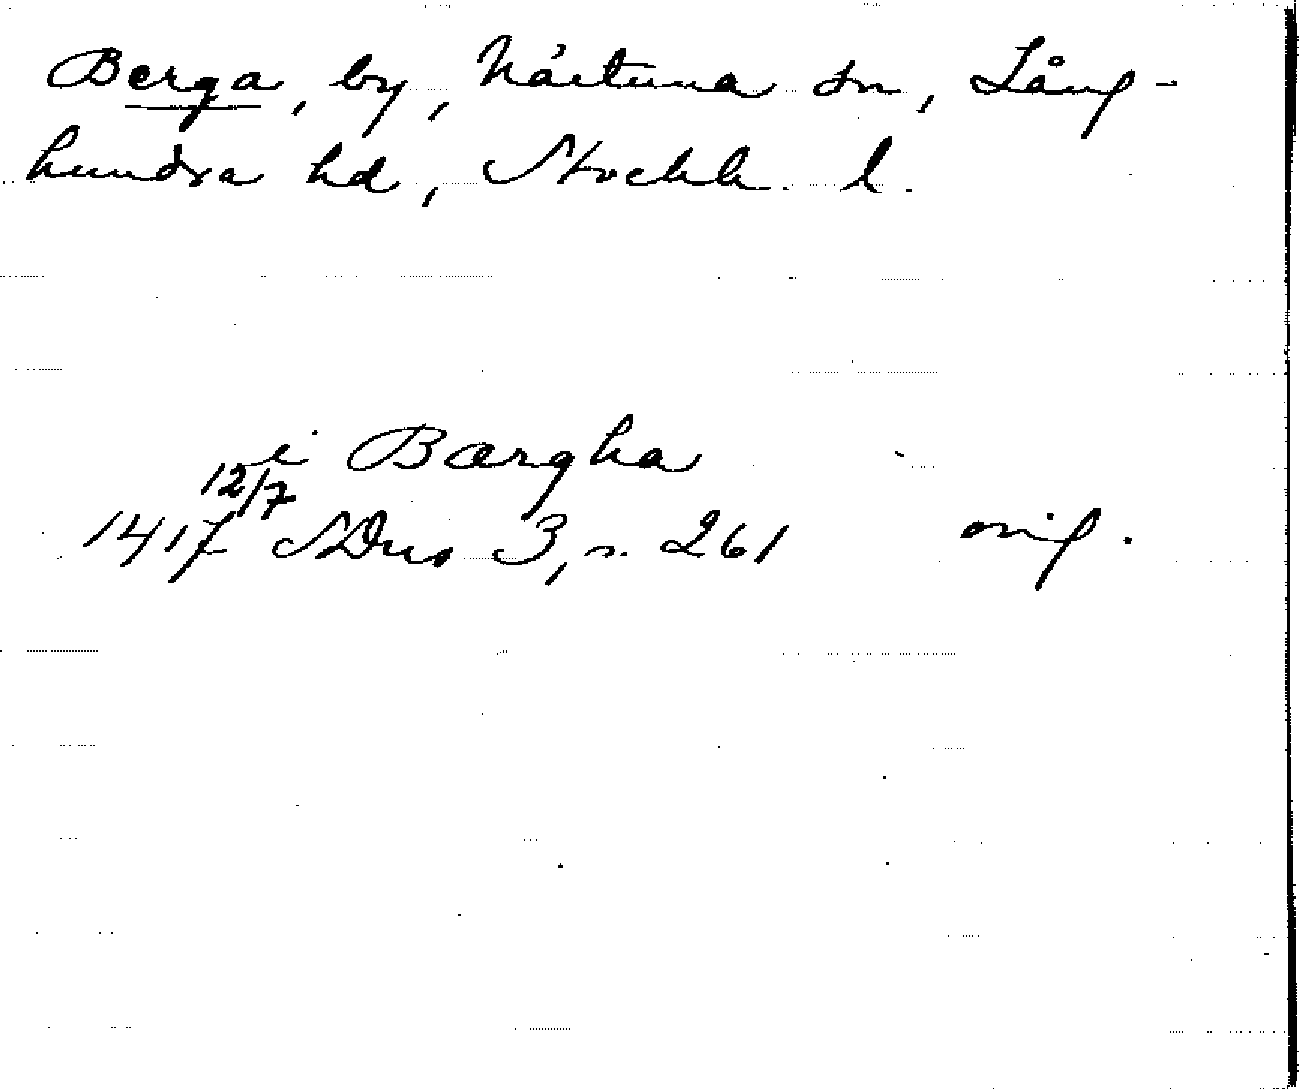 Berga, by, Närtuna sn, Lång-
hundra hd, Stockh. l.
i Bærgha
12/7
1417 SDns 3, s. 261 orig.